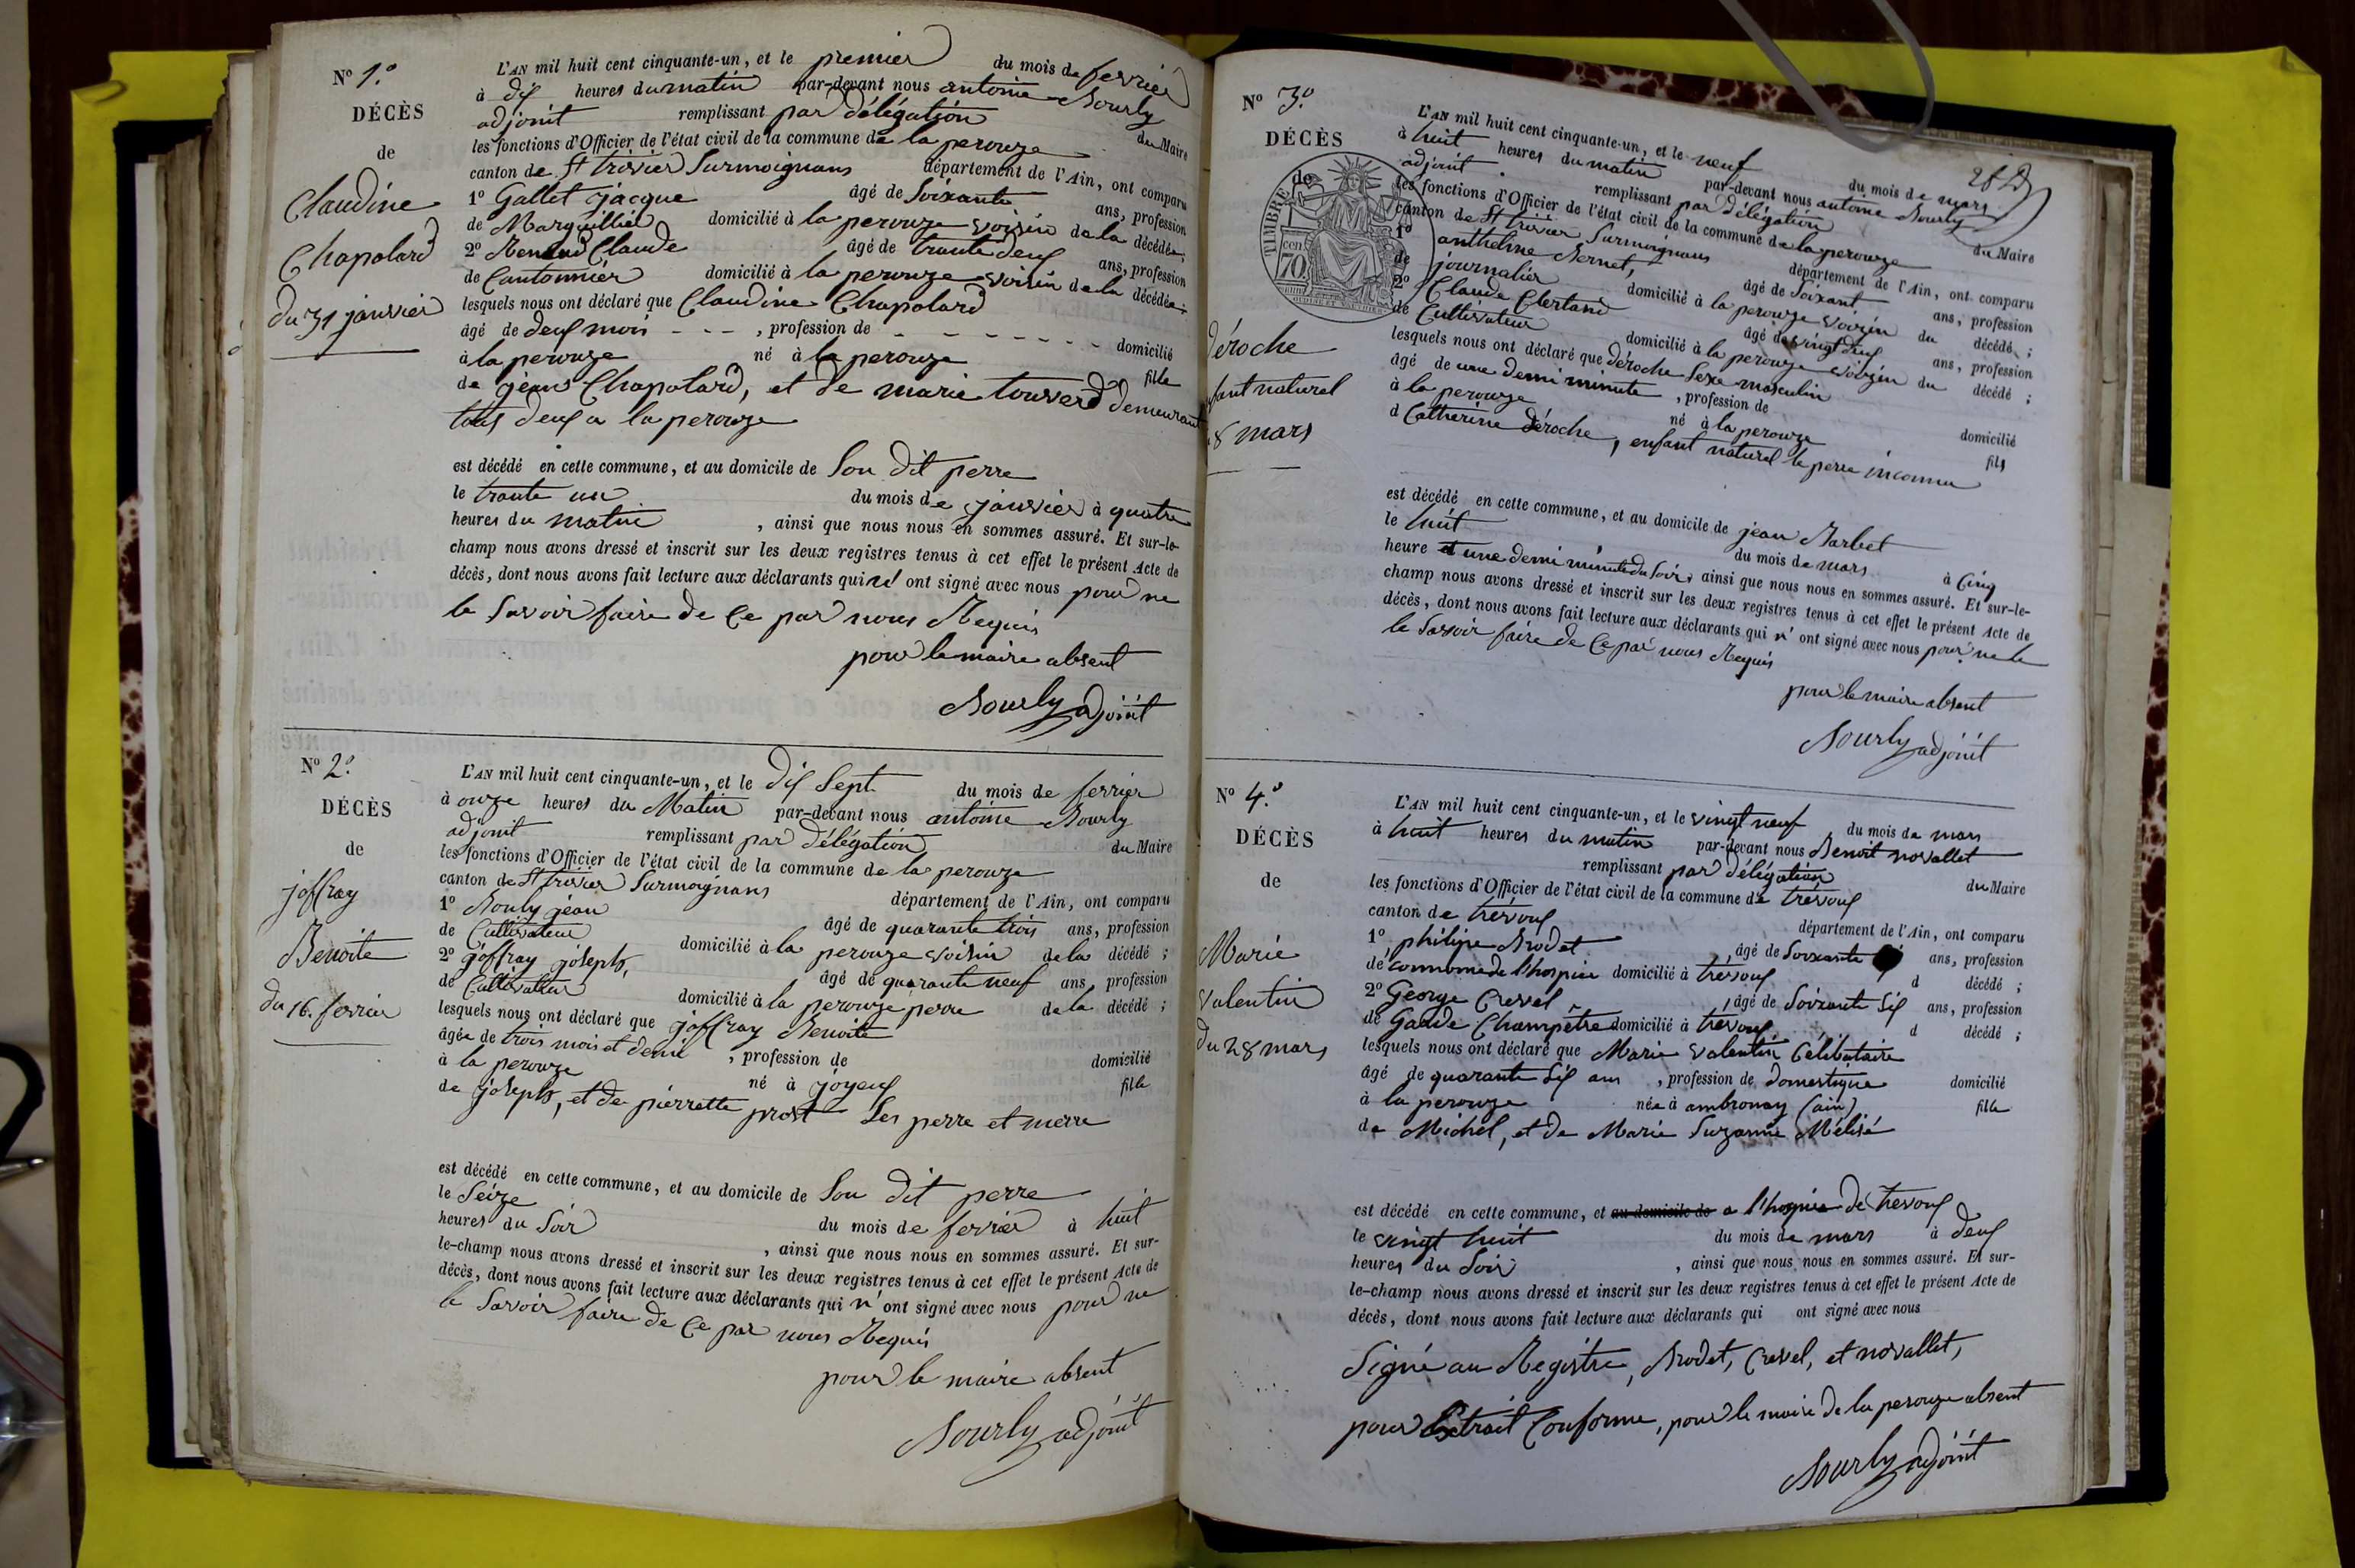 N° 1.°
DÉCÈS
de
Claudine
Chapolard
du 31 janvier
L'AN mil huit cent cinquante-un, et le premier du mois de fevrier
à dix heures du matin par-devant nous antoine Bourly
adjoint remplissant par délégation du Maire
les fonctions d'Officier de l'état civil de la commune de la perouze
canton de St trivier Surmoignans département de l'Ain, ont comparu
1° Gallet jacque âgé de Soixante ans, profession
de Marguillié domicilié à la perouze voisin de la décédée;
2° Renaud Claude âgé de trante deux ans, profession
de Cantonnier domicilié à la perouze voisin de la décédée;
lesquels nous ont déclaré que Claudine Chapolard
âgé de deux mois - - - , profession de - - - - - - - domicilié
à la perouze né à la perouze fille
de jean Chapolard, et de marie touverd demeurant
tous deux a la perouze
est décédé en cette commune, et au domicile de Son dit perre
le trante un du mois de janvier à quatre
heures du matin , ainsi que nous nous en sommes assuré. Et sur-le-
champ nous avons dressé et inscrit sur les deux registres tenus à cet effet le présent Acte de
décès, dont nous avons fait lecture aux déclarants qui n' ont signé avec nous pour ne
le Savoir faire de Ce par nous Requis
pour le maire absent
Bourly adjoint
N° 2.°
DÉCÈS
de
joffray
Benoite
du 16. fevrier
L'AN mil huit cent cinquante-un, et le dix Sept du mois de fevrier
à onze heures du Matin par-devant nous antoine Bourly
adjoint remplissant par délégation du Maire
les fonctions d'Officier de l'état civil de la commune de la perouze
canton de St trivier Surmoignans département de l'Ain, ont comparu
1° Bouly jean âgé de quarante trois ans, profession
de Cultivateur domicilié à la perouze voisin de la décédé ;
2° joffray joseph, âgé de quarante neuf ans, profession
de Cultivateur domicilié à la perouze perre de la décédé ;
lesquels nous ont déclaré que joffray Benoite
âgée de trois mois et demi , profession de domicilié
à la perouze né à joyeux fille
de joseph, et de pierrette prost Ses perre et merre
est décédé en cette commune, et au domicile de Son dit perre
le Seize du mois de fevrier à huit
heures du Soir , ainsi que nous nous en sommes assuré. Et sur-
le-champ nous avons dressé et inscrit sur les deux registres tenus à cet effet le présent Acte de
décès, dont nous avons fait lecture aux déclarants qui n' ont signé avec nous pour ne
le Savoir faire de Ce par nous Requis
pour le maire absent
Bourly adjoint
N° 3.°
DÉCÈS
de
TIMBRE
cen
70.
déroche
fant naturel
8 mars
L'AN mil huit cent cinquante-un, et le neuf du mois de mars
à huit heures du matin par-devant nous antoine Bourly
adjoint remplissant par délégation du Maire
les fonctions d'Officier de l'état civil de la commune de la perouze
canton de St trivier Surmoignans département de l'Ain, ont comparu
1° anthelme Bernet, âgé de Soixant ans, profession
de journalier domicilié à la perouze voizin du décédé ;
2° Claude Clertand âgé de vingt deux ans, profession
de Cultivateur domicilié à la perouze voizin du décédé ;
lesquels nous ont déclaré que déroche Sexe masculin
âgé de une demi minute , profession de domicilié
à la perouze né à la perouze fils
d Catherine déroche, enfant naturel le perre inconnu
est décédé en cette commune, et au domicile de jean Barbet
le huit du mois de mars à Cinq
heure et une demi minute du Soir, ainsi que nous nous en sommes assuré. Et sur-le-
champ nous avons dressé et inscrit sur les deux registres tenus à cet effet le présent Acte de
décès, dont nous avons fait lecture aux déclarants qui n' ont signé avec nous pour ne le
le Savoir faire de Ce par nous Requis
pour le maire absent
Bourly adjoint
N° 4.°
DÉCÈS
de
Marie
valentin
du 28 mars
L'AN mil huit cent cinquante-un, et le vingt neuf du mois de mars
à huit heures du matin par-devant nous Benoit novallet
remplissant par délégation du Maire
les fonctions d'Officier de l'état civil de la commune de trévoux
canton de trévoux département de l'Ain, ont comparu
1° philipe Brodet âgé de Soixante ans, profession
de connome de l'hospice domicilié à trévoux d décédé ;
2° George Crevel , âgé de Soixante Six ans, profession
de Garde Champêtre domicilié à trévoux d décédé ;
lesquels nous ont déclaré que Marie valentin Célibataire
âgé de quarante Six ans , profession de domestique domicilié
à la perouze née à ambronay (ain) fille
de Michel, et de Marie Suzanne Mélisé
est décédé en cette commune, et au domicile de a l'hospice de trevoux
le vingt huit du mois de mars à deux
heures du Soir , ainsi que nous nous en sommes assuré. Et sur-
le-champ nous avons dressé et inscrit sur les deux registres tenus à cet effet le présent Acte de
décès, dont nous avons fait lecture aux déclarants qui ont signé avec nous
Signé au Registre, Brodet, Crevel, et novallet,
pour Extrait Conforme, pour le maire de la perouze absent
Bourly adjoint